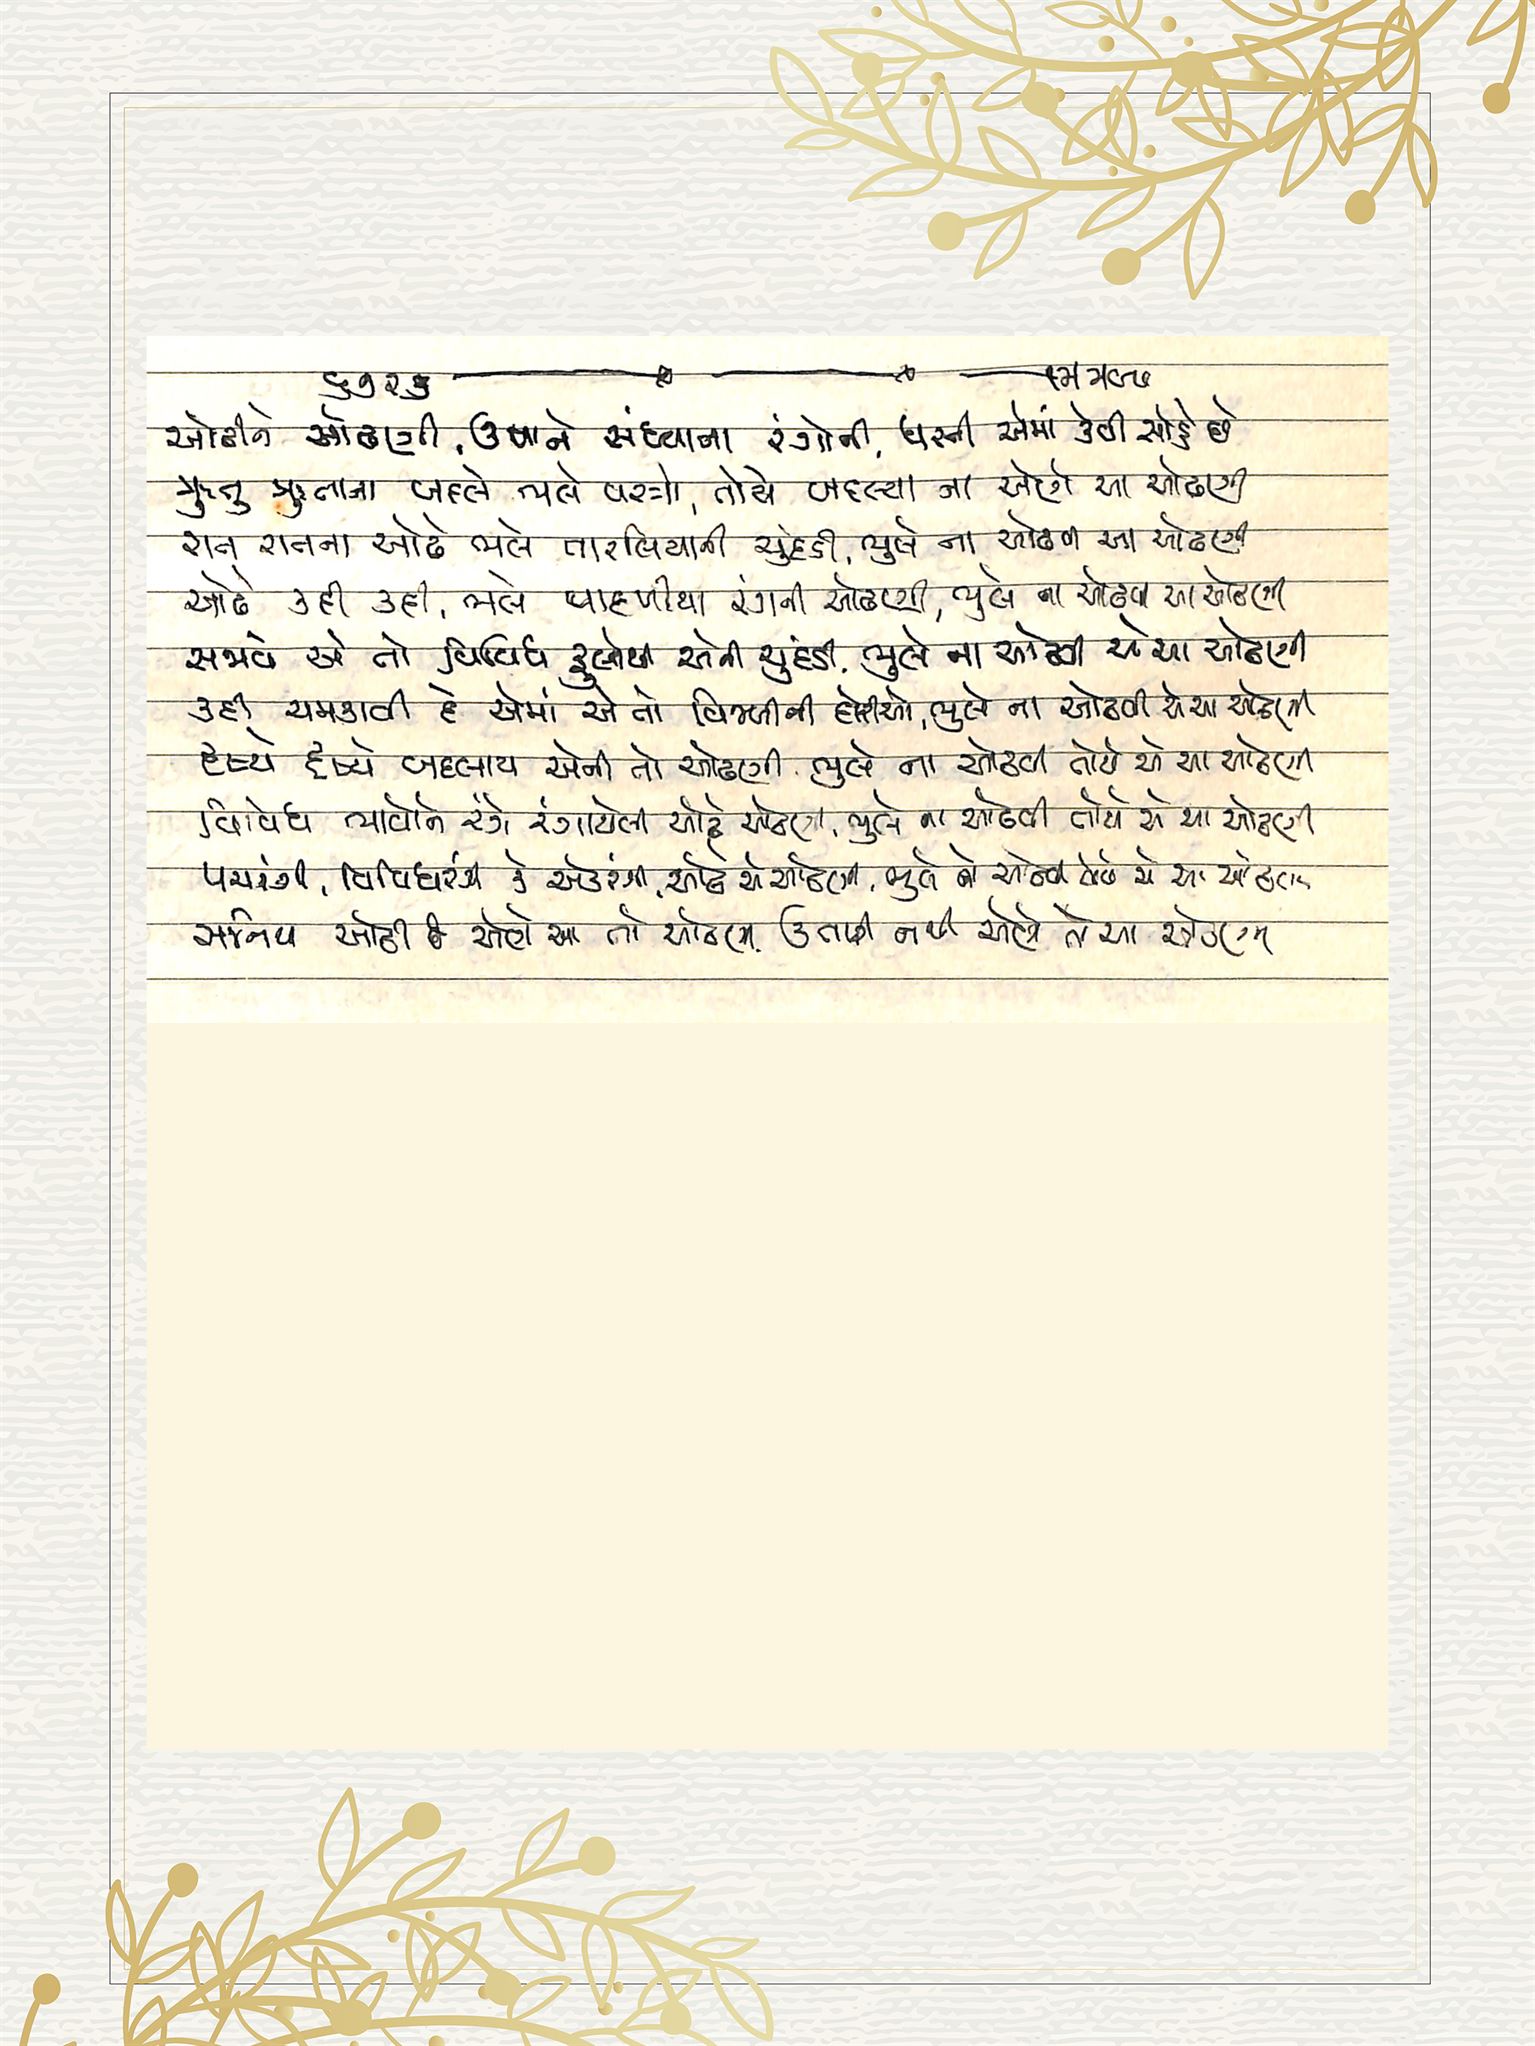 ઓઢીને ઓઢણી, ઉષાને સંધ્યાના રંગોની, ધરતી એમાં કેવી સોહે છે
ઋતુ ઋતુના બદલે ભલે વસ્ત્રો, તોયે બદલ્યા ના એણે આ ઓઢણી
રાત રાતના ઓઢે ભલે તારલિયાની ચુંદડી, ભુલે ના ઓઢવી આ ઓઢણી
ઓઢે કદી કદી, ભલે વાદળીયા રંગની ઓઢણી, ભુલે ના ઓઢવી આ ઓઢણી
સજાવે એ તો વિવિધ ફુલોથી એની ચુંદડી, ભુલે ના ઓઢવી એ આ ઓઢણી
કદી ચમકાવી દે એમાં એ તો વિજળીની દોરીઓ, ભુલે ના ઓઢવી એ આ ઓઢણી
દૃશ્યે દૃશ્યે બદલાય એની તો ઓઢણી, ભુલે ના ઓઢવી તોયે એ આ ઓઢણી
વિવિધ ભાવોને રંગે રંગાયેલી ઓઢે ઓઢણી, ભુલે ના ઓઢવી તોયે એ આ ઓઢણી
પચરંગી, વિવિધરંગી કે એકરંગી, ઓઢે એ ઓઢણી, ભુલે ના ઓઢવી તોયે એ આ ઓઢણી
ઓઢી છે એણે આ તો ઓઢણી, ઉતારી નથી એણે તે આ ઓઢણી